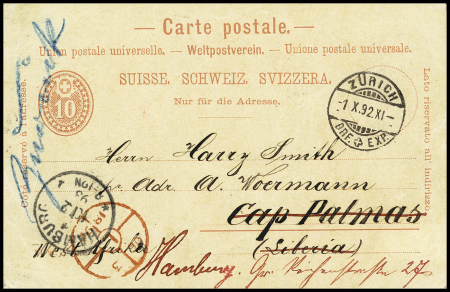 — Carte postale. —
Union postale universelle. — Weltpostverein. — Unione postale universale.
SUISSE. SCHWEIZ. SVIZZERA.
Nur für die Adresse.
Côté réservé à l'adresse.
Lato riservato all' indirizzo
10
ZÜRICH
-1.X.92.XI-
BRF. EXP.
Herrn Harry Smith
pr. Adr. A. Woermann
Cap Palmas
(Liberia)
West Afrika
Hamburg.
HAMBURG